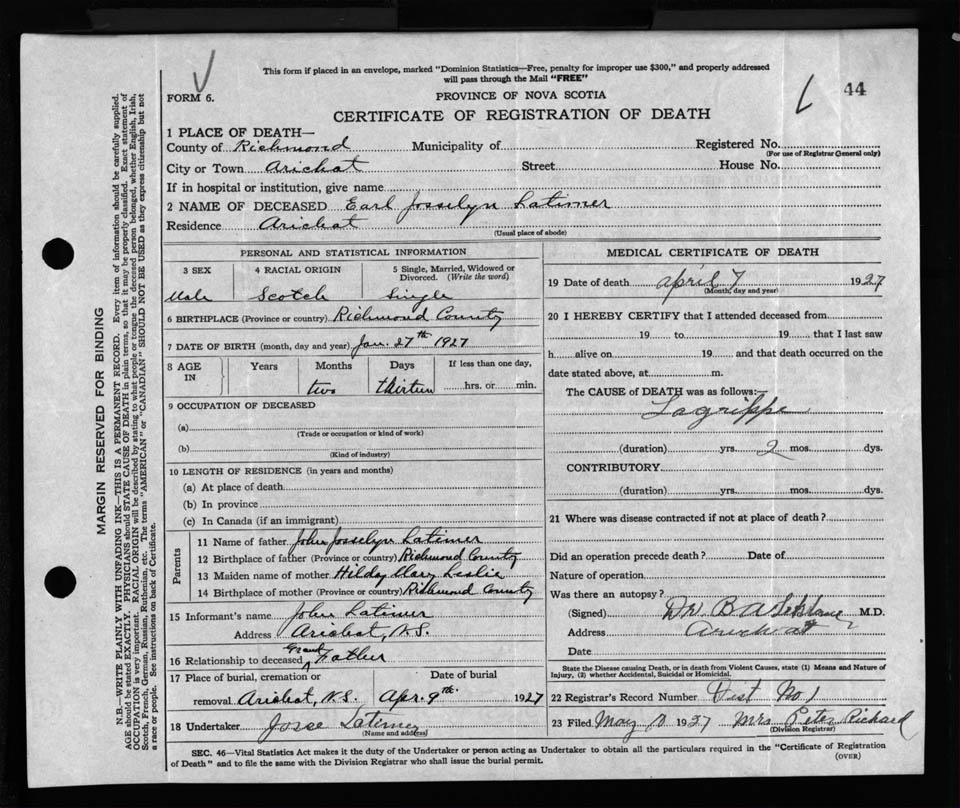 This form if placed in an envelope, marked "Dominion Statistics—Free, penalty for improper use $300," and properly addressed
will pass through the Mail "FREE"
44
FORM 6.
PROVINCE OF NOVA SCOTIA
CERTIFICATE OF REGISTRATION OF DEATH
1 PLACE OF DEATH—
County of Richmond Municipality of Registered No.
(For use of Registrar General only)
City or Town Arichat Street House No.
If in hospital or institution, give name
2 NAME OF DECEASED Earl Josselyn Latimer
Residence Arichat
(Usual place of abode)
PERSONAL AND STATISTICAL INFORMATION
3 SEX 4 RACIAL ORIGIN 5 Single, Married, Widowed or
Divorced. (Write the word)
Male Scotch Single
6 BIRTHPLACE (Province or country) Richmond County
7 DATE OF BIRTH (month, day and year) Jan. 27th 1927
8 AGE IN Years Months Days If less than one day,
two thirteen hrs. or min.
9 OCCUPATION OF DECEASED
(a)
(Trade or occupation or kind of work)
(b)
(Kind of industry)
10 LENGTH OF RESIDENCE (in years and months)
(a) At place of death
(b) In province
(c) In Canada (if an immigrant)
Parents
11 Name of father John Josselyn Latimer
12 Birthplace of father (Province or country) Richmond County
13 Maiden name of mother Hilda Mary Leslie
14 Birthplace of mother (Province or country) Richmond County
15 Informant's name John Latimer
Address Arichat, N.S.
16 Relationship to deceased Grand Father
17 Place of burial, cremation or Date of burial
removal Arichat, N.S. Apr. 9th 1927
18 Undertaker Latimer
(Name and address)
MEDICAL CERTIFICATE OF DEATH
19 Date of death April 7 1927
(Month, day and year)
20 I HEREBY CERTIFY that I attended deceased from
19 to 19 that I last saw
h alive on 19 and that death occurred on the
date stated above, at m.
The CAUSE of DEATH was as follows:—
Lagrippe
(duration) yrs. 2 mos. dys.
CONTRIBUTORY
(duration) yrs. mos. dys.
21 Where was disease contracted if not at place of death?
Did an operation precede death? Date of
Nature of operation
Was there an autopsy?
(Signed) Dr. B A M.D.
Address Arichat
Date
State the Disease causing Death, or in death from Violent Causes, state (1) Means and Nature of
Injury, (2) whether Accidental, Suicidal or Homicidal.
22 Registrar's Record Number Dist No. 1
23 Filed May 1927 Mrs Peter Richard
(Division Registrar)
SEC. 46—Vital Statistics Act makes it the duty of the Undertaker or person acting as Undertaker to obtain all the particulars required in the "Certificate of Registration
of Death" and to file the same with the Division Registrar who shall issue the burial permit.
(OVER)
MARGIN RESERVED FOR BINDING
N.B.—WRITE PLAINLY WITH UNFADING INK—THIS IS A PERMANENT RECORD. Every item of information should be carefully supplied.
AGE should be stated EXACTLY. PHYSICIANS should STATE CAUSE OF DEATH in plain terms, so that it may be properly classified. Exact statement of
OCCUPATION is very important. RACIAL ORIGIN will be described by stating to what people or tongue the deceased person belonged, whether English, Irish,
Scotch, French, German, Russian, Ruthenian, etc. The terms "AMERICAN" or "CANADIAN" SHOULD NOT BE USED as they express citizenship but not
a race or people. See instructions on back of Certificate.